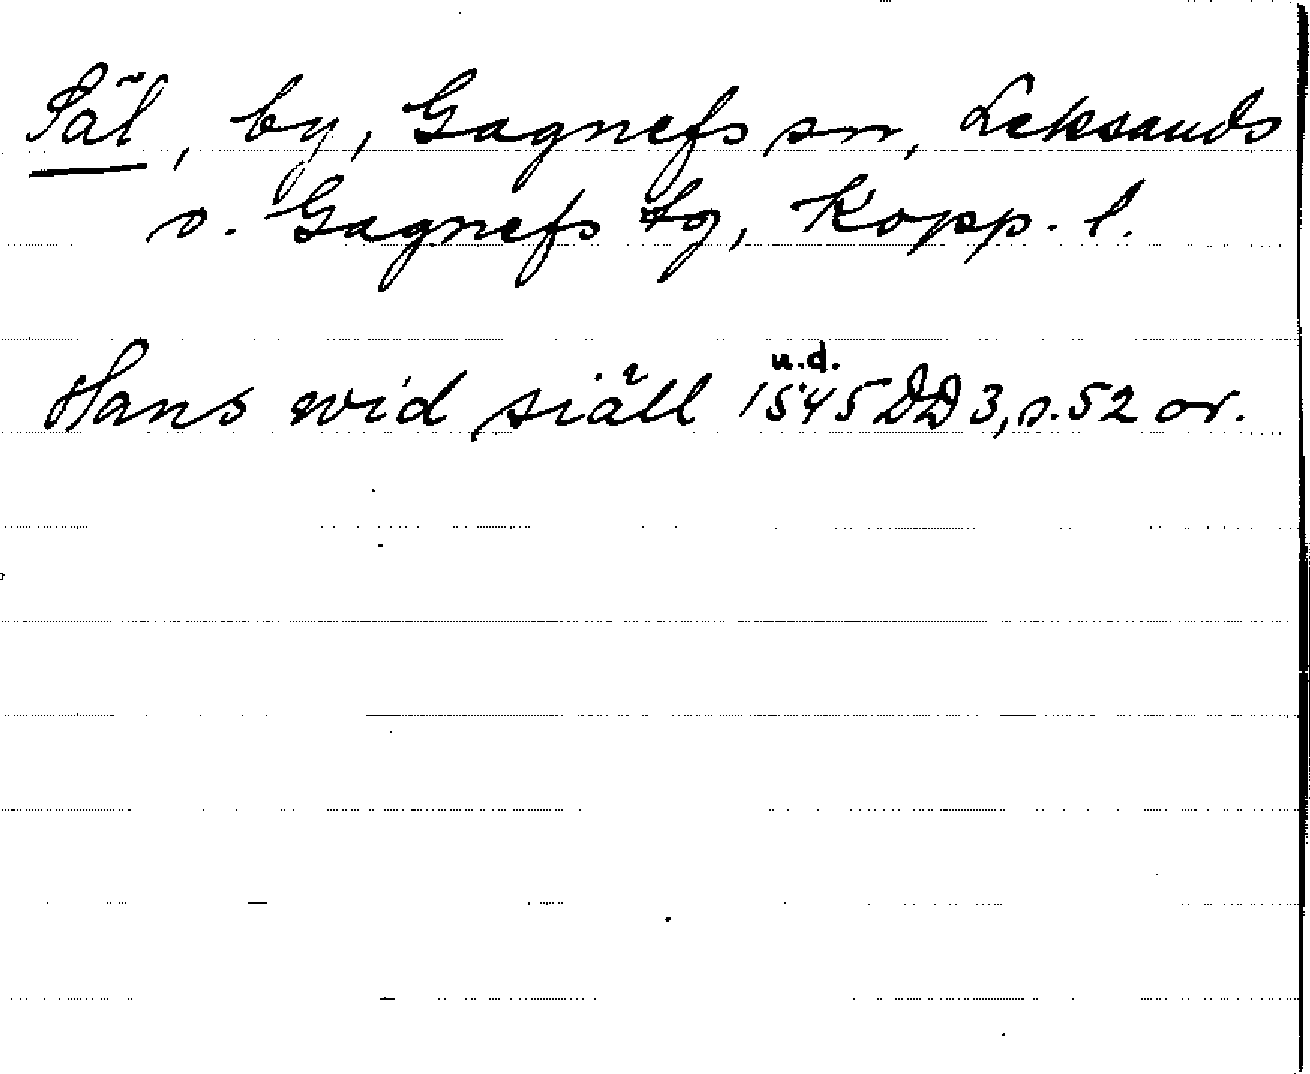 Säl, by, Gagnefs sn, Leksands
o. Gagnefs tg, Kopp. l.
u.d.
Hans wid siäll 1545 DD 3, s. 52 or.